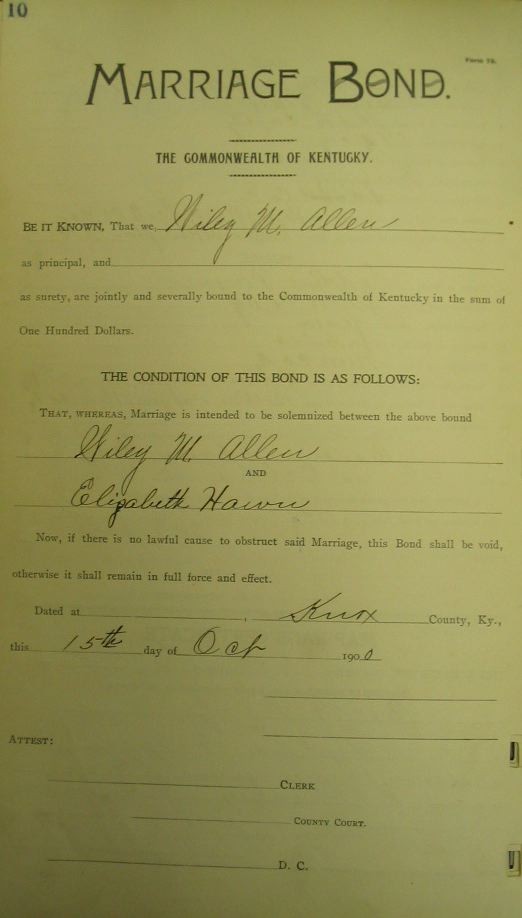 10
Form 73.
MARRIAGE BOND.
THE COMMONWEALTH OF KENTUCKY.
BE IT KNOWN, That we, Wiley M. Allen
as principal, and
as surety, are jointly and severally bound to the Commonwealth of Kentucky in the sum of
One Hundred Dollars.
THE CONDITION OF THIS BOND IS AS FOLLOWS:
THAT, WHEREAS, Marriage is intended to be solemnized between the above bound
Wiley M. Allen
AND
Elizabeth Hawn
Now, if there is no lawful cause to obstruct said Marriage, this Bond shall be void,
otherwise it shall remain in full force and effect.
Dated at , Knox County, Ky.,
this 15th day of Oct 1900
ATTEST:
CLERK
COUNTY COURT.
D. C.